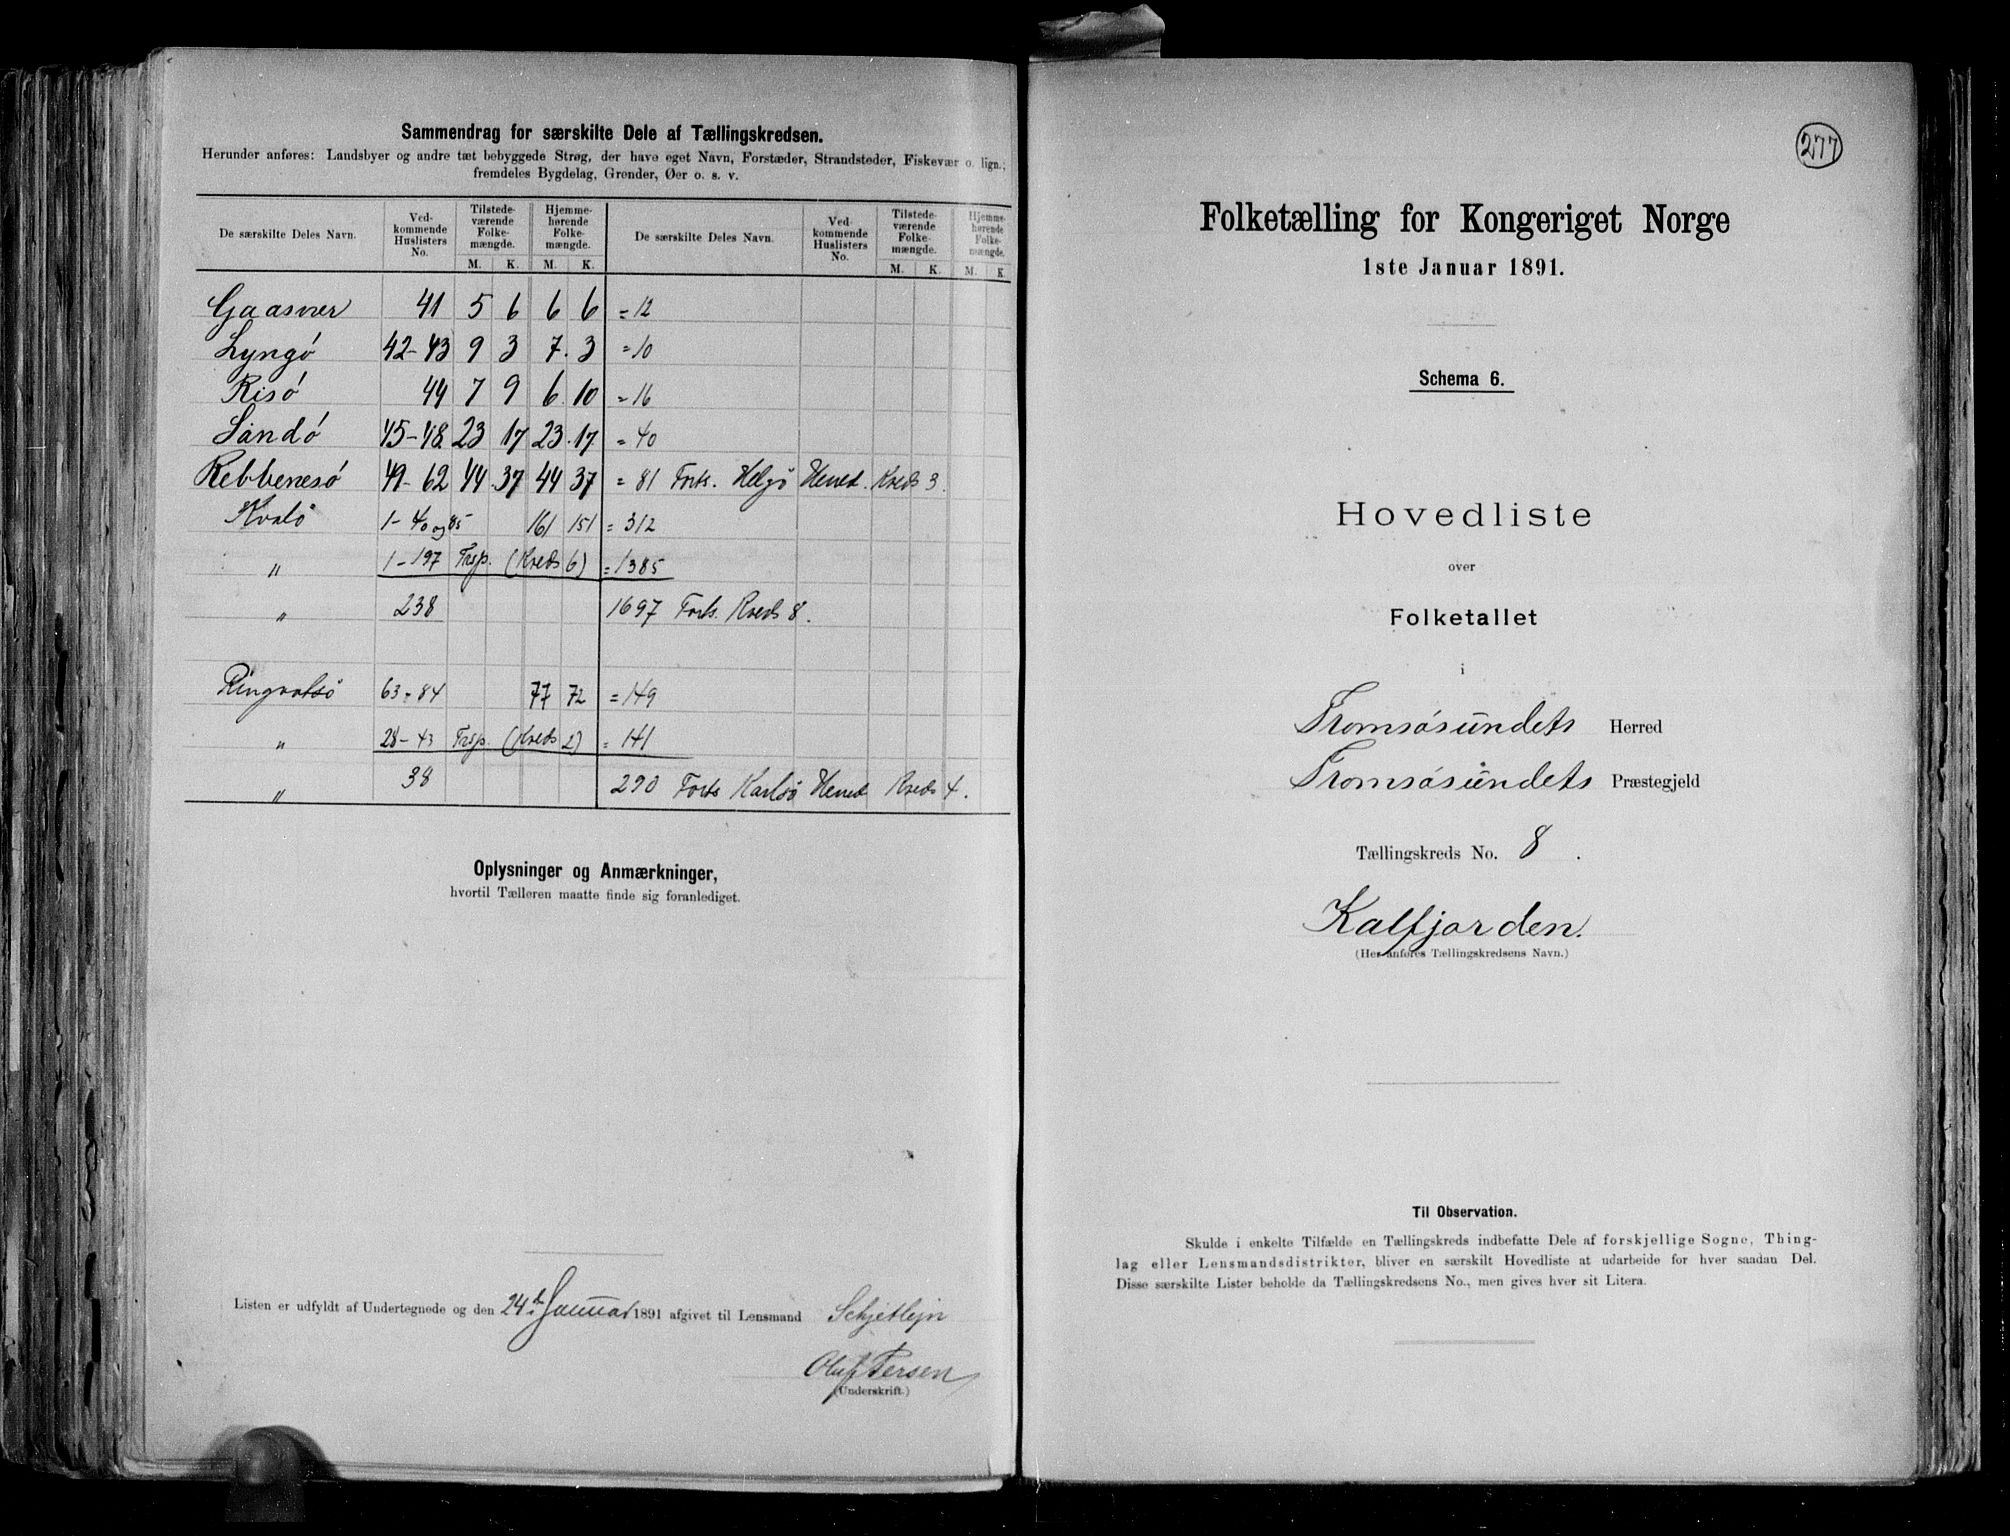 Sammendrag for særskilte Dele af Tællingskredsen.
Herunder anføres: Landsbyer og andre tæt bebyggede Strøg, der have eget Navn, Forstæder, Strandsteder, Fiskevær o. lign.;
fremdeles Bygdelag, Grender, Øer o. s. v.
De særskilte Deles Navn. Ved-kommende Huslisters No. Tilstede-værende Folke-mængde. Hjemme-hørende Folke-mængde. De særskilte Deles Navn. Ved-kommende Huslisters No. Tilstede-værende Folke-mængde. Hjemme-hørende Folke-mængde.
M. K. M. K. M. K. M. K.
Gaasvær 41 5 6 6 6 = 12
Lyngö 42-43 9 3 7. 3 = 10
Risö 44 7 9 6 10 = 16
Sandö 45-48 23 17 23. 17 = 40
Rebbenesö 49-62 44. 37 44 37 = 81 Forts. Helgö Herred. Kreds 3.
Kvalö 1-40 og 85 161 151 = 312
" 1-197 Trsp. (Kreds 6) = 1385
" 238 1697 Forts. Kreds 8.
Ringvatsö 63-84 77 72 = 149
" 28-43 Trsp. (Kreds 2) = 141
" 38 290 Forts Karlsö Herred Kreds 4.
Oplysninger og Anmærkninger,
hvortil Tælleren maatte finde sig foranlediget.
Listen er udfyldt af Undertegnede og den 24de Januar 1891 afgivet til Lensmand Schjetlejn
Oluf Persen
(Underskrift.)
277
Folketælling for Kongeriget Norge
1ste Januar 1891.
Schema 6.
Hovedliste
over
Folketallet
i
Tromsösundets Herred
Tromsösundets Præstegjeld
Tællingskreds No. 8.
Kalfjorden.
(Her anføres Tællingskredsens Navn.)
Til Observation.
Skulde i enkelte Tilfælde en Tællingskreds indbefatte Dele af forskjellige Sogne, Thing-
lag eller Lensmandsdistrikter, bliver en særskilt Hovedliste at udarbeide for hver saadan Del.
Disse særskilte Lister beholde da Tællingskredsens No., men gives hver sit Litera.